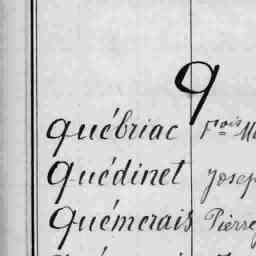 q
québriac Fois
quédinet
quémerais Pierre